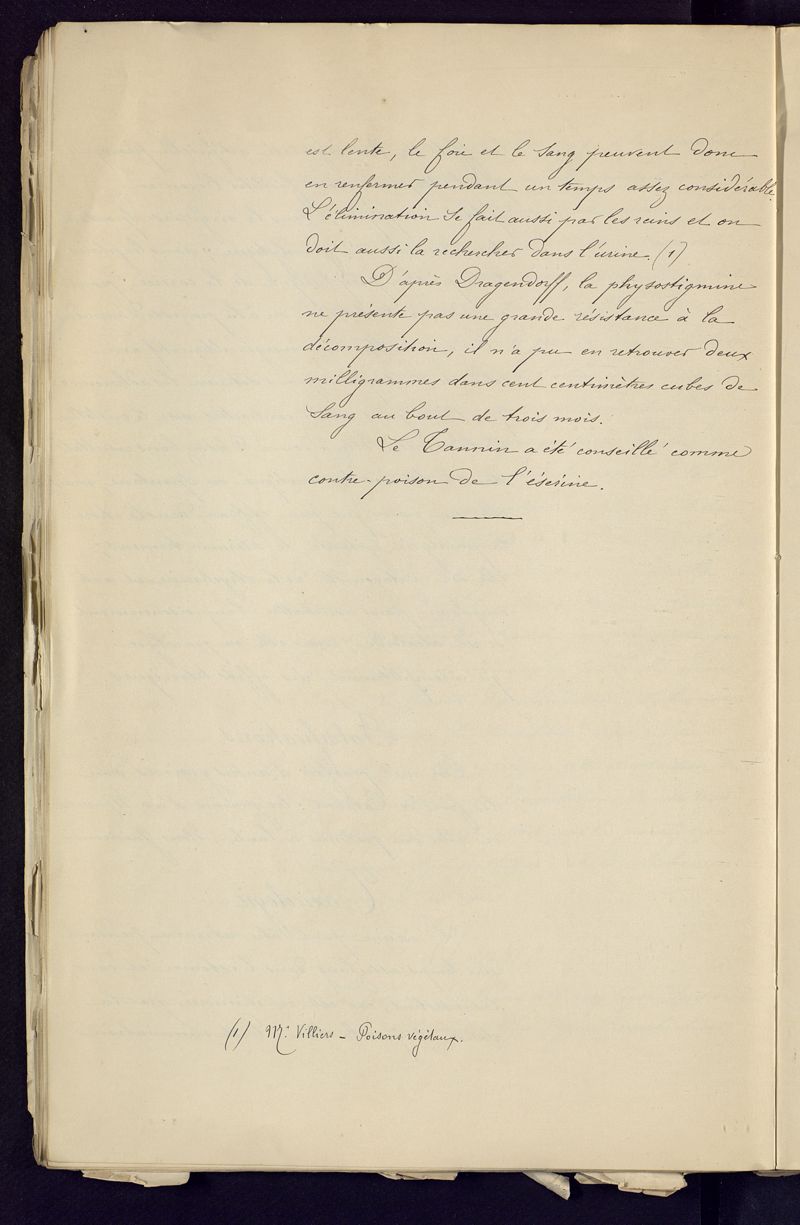 est lente, le foie et le sang peuvent donc
en renfermer pendant un temps assez considérable.
L'élimination se fait aussi par les reins et on
doit aussi la rechercher dans l'urine. (1)
D'après Dragendorff, la physostigmine
ne présente pas une grande résistance à la
décomposition, il n'a pu en retrouver deux
milligrammes dans cent centimètres cubes de
sang au bout de trois mois.
Le Tannin a été conseillé comme
contre-poison de l'ésérine.
(1) Mr. Villiers - Poisons végétaux.